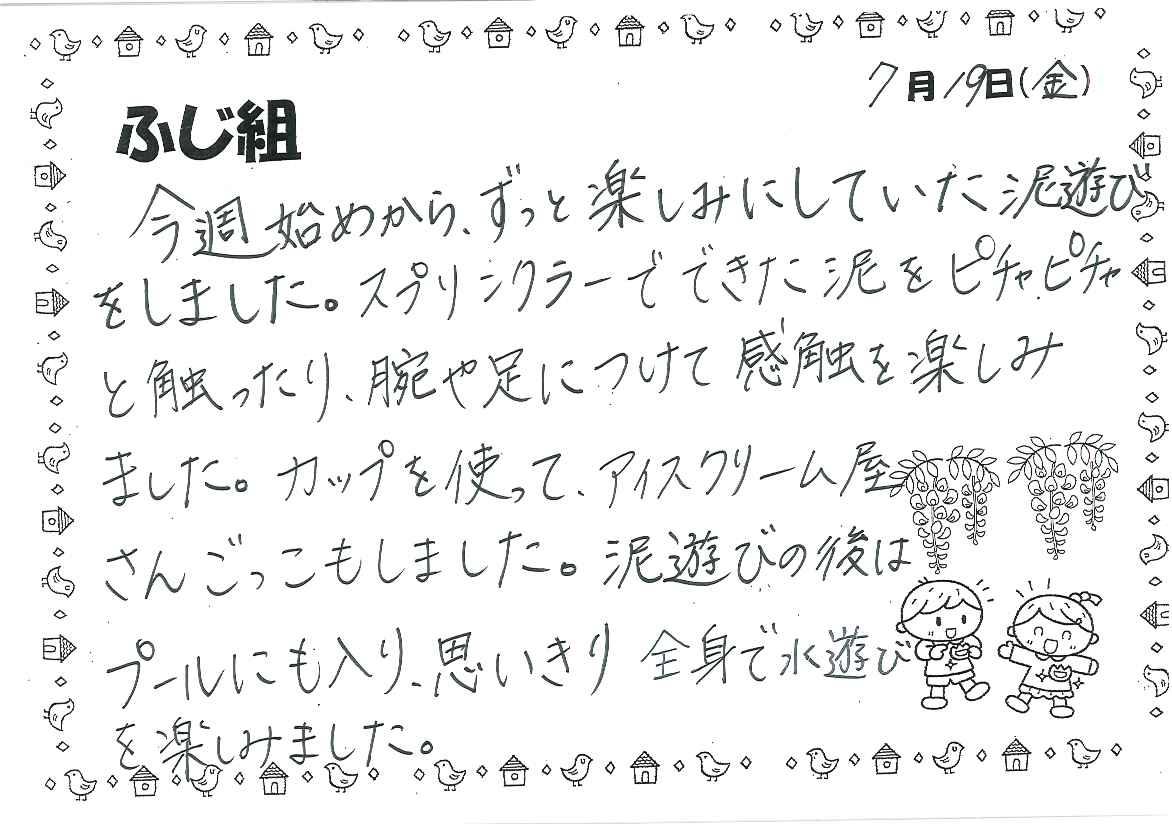 7月19日(金)
ふじ組
今週始めから、ずっと楽しみにしていた泥遊び
をしました。スプリンクラーでできた泥をピチャピチャ
と触ったり、腕や足につけて感触を楽しみ
ました。カップを使って、アイスクリーム屋
さんごっこもしました。泥遊びの後は
プールにも入り、思いきり全身で水遊び
を楽しみました。